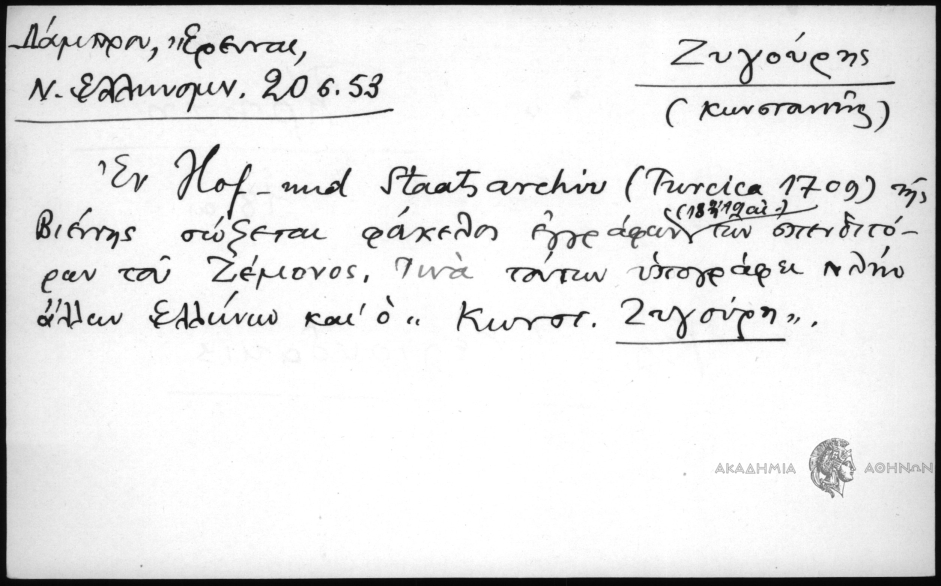 Λάμπρου, Ἔρευναι,
Ν. Ἑλληνομν. 20 σ. 53
Ζυγούρης
(Κωνσταντῆς)
Ἐν Hof- und Staatsarchiv (Turcica 1709) τῆς
Βιέννης σώζεται φάκελος ἐγγράφων (18-19 αἰ.) τῶν σπεδιτό-
ρων τοῦ Ζέμονος. Τινὰ τούτων ὑπογράφει πλὴν
ἄλλων Ἑλλήνων καὶ ὁ "Κωνστ. Ζυγούρη".
ΑΚΑΔΗΜΙΑ ΑΘΗΝΩΝ